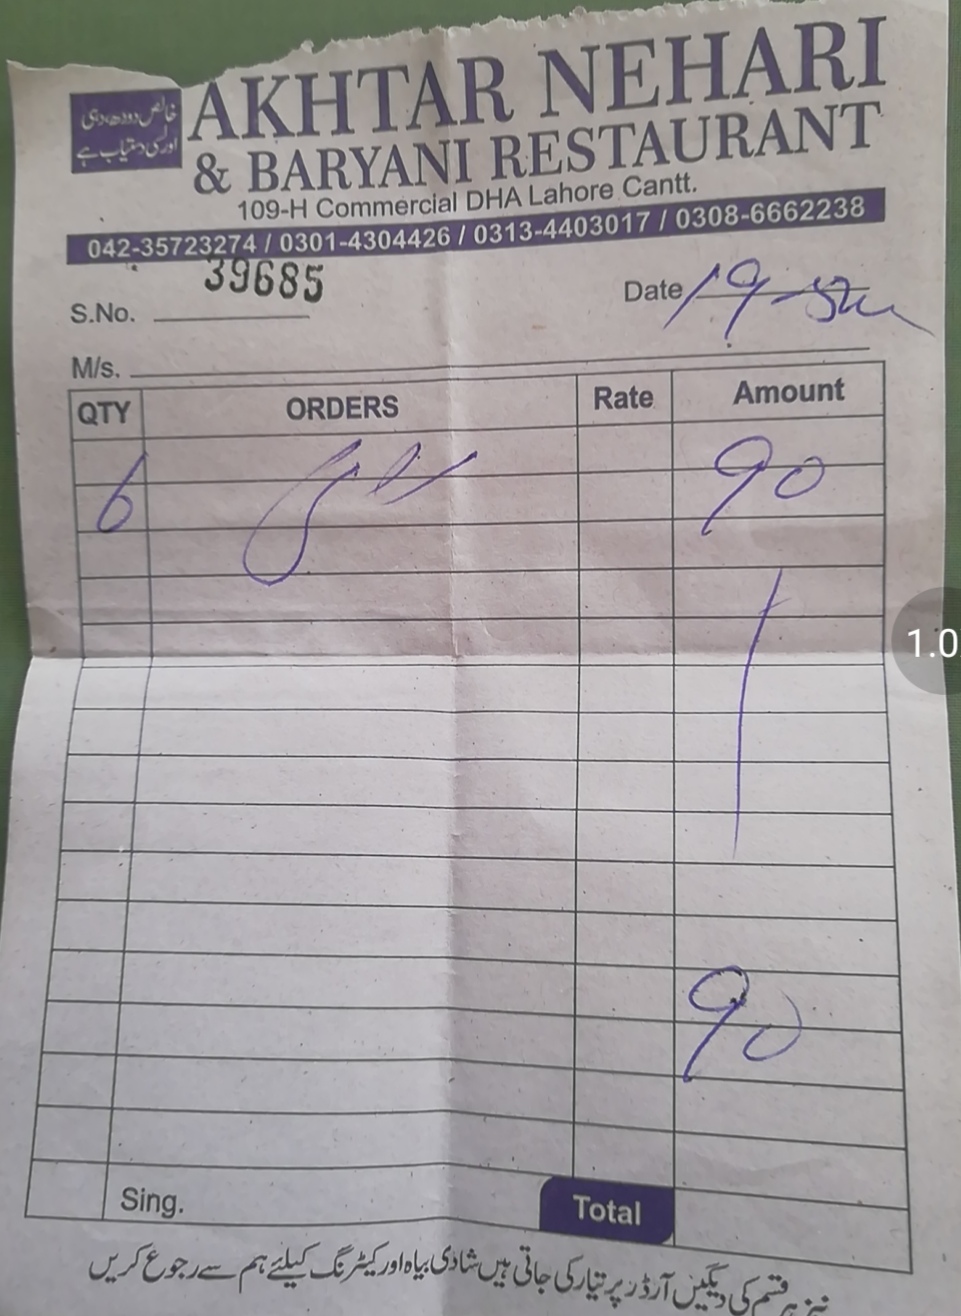 خالص دودھ، دہی
اور لسی دستیاب ہے
AKHTAR NEHARI
& BARYANI RESTAURANT
109-H Commercial DHA Lahore Cantt.
042-35723274 / 0301-4304426 / 0313-4403017 / 0308-6662238
39685
S.No.
Date 19
M/s.
QTY ORDERS Rate Amount
6 90
1.0
90
Sing. Total
قسم کی دیگیں آرڈر پر تیار کی جاتی ہیں شادی بیاہ اور کیٹرنگ کیلئے ہم سے رجوع کریں